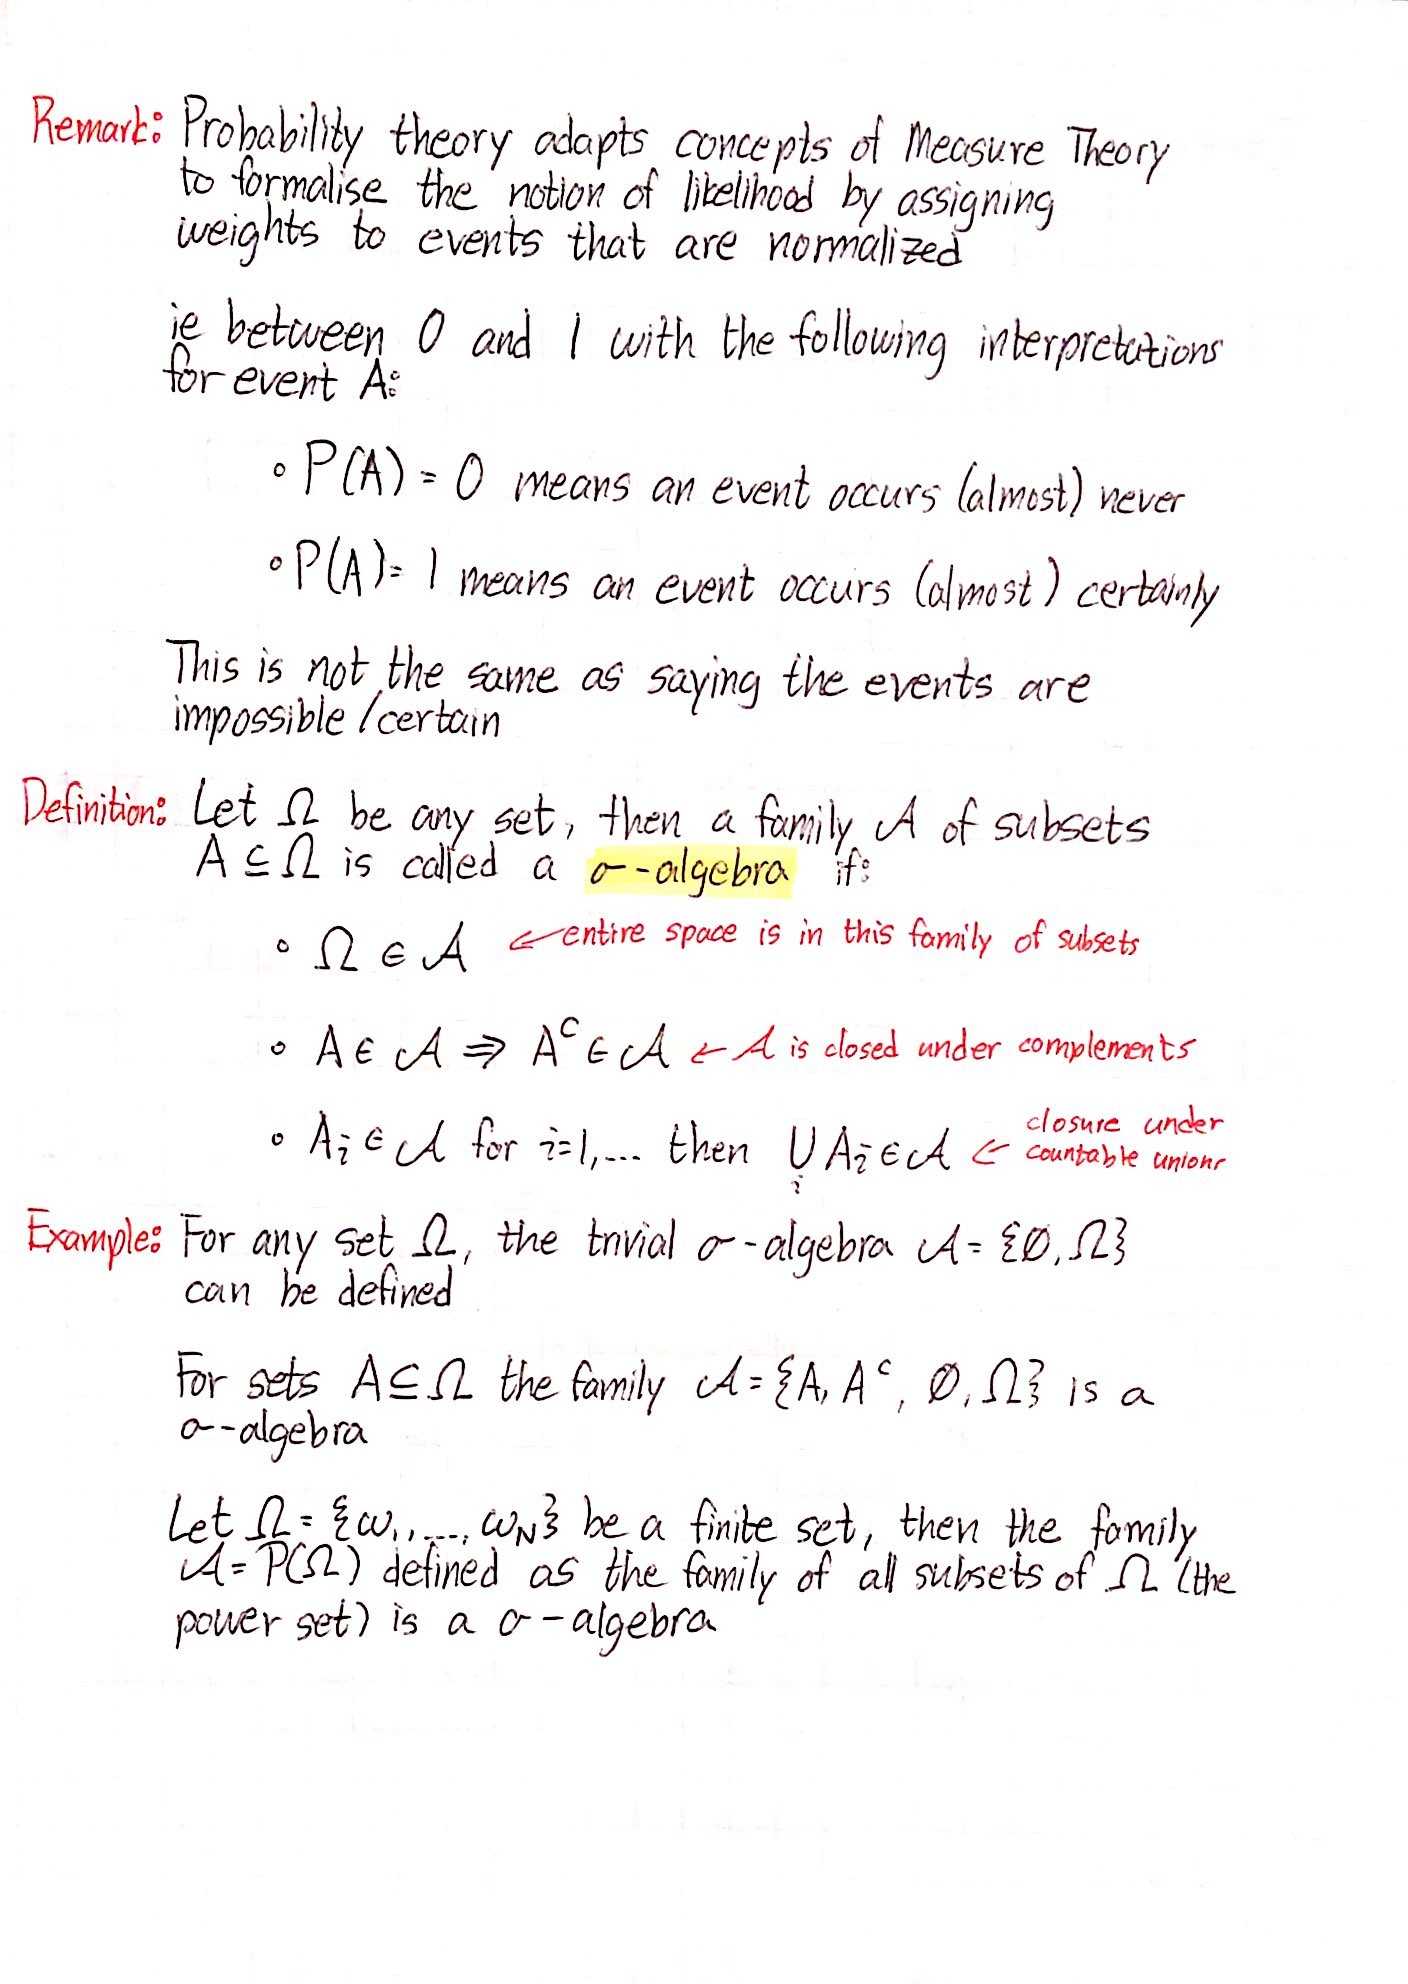 Remark: Probability theory adapts concepts of Measure Theory
to formalise the notion of likelihood by assigning
weights to events that are normalized
ie between 0 and 1 with the following interpretations
for event A:
∘ P(A) = 0 means an event occurs (almost) never
∘ P(A) = 1 means an event occurs (almost) certainly
This is not the same as saying the events are
impossible / certain
Definition: Let Ω be any set, then a family 𝒜 of subsets
A ⊆ Ω is called a σ-algebra if:
∘ Ω ∈ 𝒜 ← entire space is in this family of subsets
∘ A ∈ 𝒜 ⇒ Aᶜ ∈ 𝒜 ← 𝒜 is closed under complements
∘ Aᵢ ∈ 𝒜 for i=1,... then ⋃ᵢ Aᵢ ∈ 𝒜 ← closure under
countable unions
Example: For any set Ω, the trivial σ-algebra 𝒜 = {∅, Ω}
can be defined
For sets A ⊆ Ω the family 𝒜 = {A, Aᶜ, ∅, Ω} is a
σ-algebra
Let Ω = {ω₁, ...., ω_N} be a finite set, then the family
𝒜 = P(Ω) defined as the family of all subsets of Ω (the
power set) is a σ-algebra